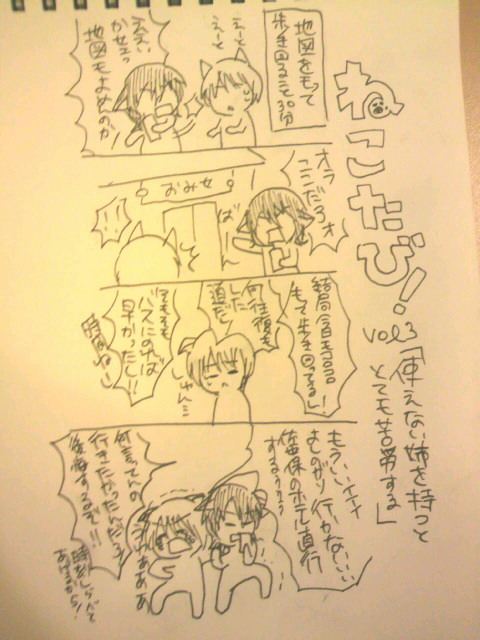 ねこたび!
vol.3
「使えない姉を持つと
とても苦労する」
地図をもって
歩き回ること30分
えーと
えーと
ええい
かせェっ
地図もよめのか
オラ
ここだろオ
ばーん
おみせ
そ
!!
結局全部
もって歩き回ってるし!
何往復も
した
道だ
しゅん…
そもそも
バスにのれば
早かったし!!
時間ねー
もういいよ
行かないい
佐保のホテル直行
するううう
何言ってんの
行きたかったんだろ
後悔するぞ!!!
時刻しらべて
あげるから!
うああああ